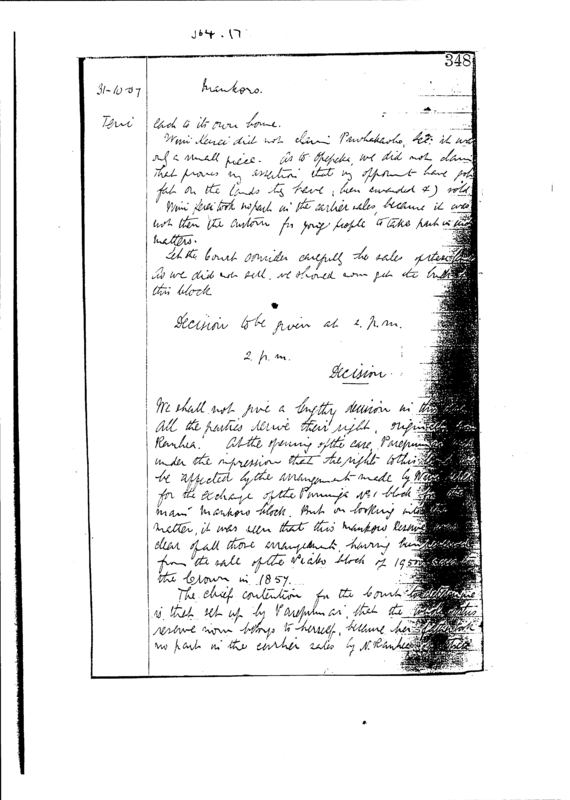 364.17
348
31-10-07 Mankoro.
Teni each to its own home.
Wini Kerei did not claim Pawhakaoho, &c: it was
only a small piece. As to Opepeke, we did not claim
that proves my assertion that my opponents have got
fat on the lands they have, been awarded &) sold
Wini Kerei took no part in the earlier sales, because it was
not then the custom for young people to take part in such
matters.
Let the Court consider carefully the sales of
As we did not sell, we should now get the
this block
Decision to be given at 2. p.m.
2 p.m.
Decision.
We shall not give a lengthy decision in this
All the parties derive their right, originally from
Ranhea. At the opening of the case,
under the impression that the rights to this
be affected by the arrangement made by
for the exchange of the No 1 block for the
main Mankoro block. But on looking into the
matter, it was seen that this Mankoro Reserve
clear of all those arrangements having been reserved
from the sale of the block of 1950
the Crown in 1857.
The chief contention for the Court to determine
is that set up by that the
reserve now belongs to herself, because her
no part in the earlier sales by N. Ranhea